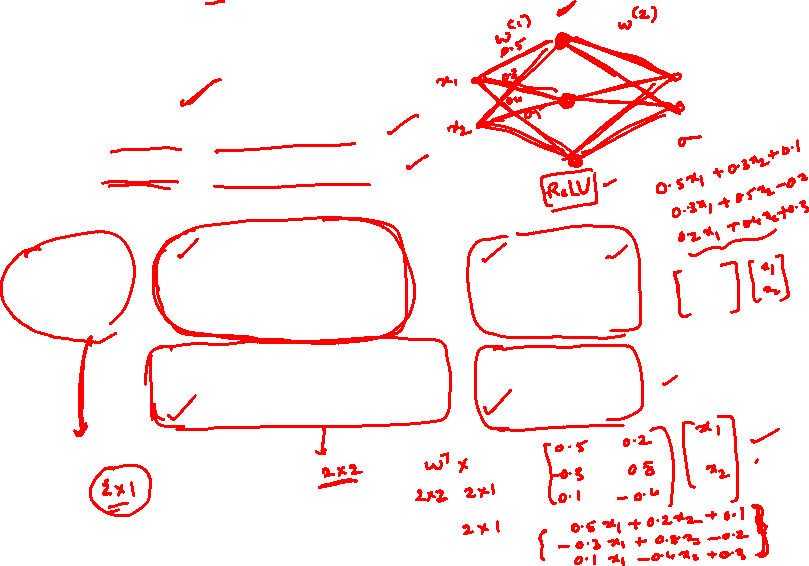 w(1) w(2)
0.5
x1 0.3
0.4
x2 0.5
σ
ReLU
0.5x1 + 0.3x2 + 0.1
0.3x1 + 0.5x2 - 0.2
0.2x1 + 0.4x2 + 0.3
[ ] [x1
x2]
2x1
2x2
W^T X
2x2 2x1
2x1
[0.5 0.2
-0.3 0.8
0.1 -0.4] [x1
x2]
[0.5x1 + 0.2x2 + 0.1
-0.3x1 + 0.8x2 - 0.2
0.1x1 - 0.4x2 + 0.3]